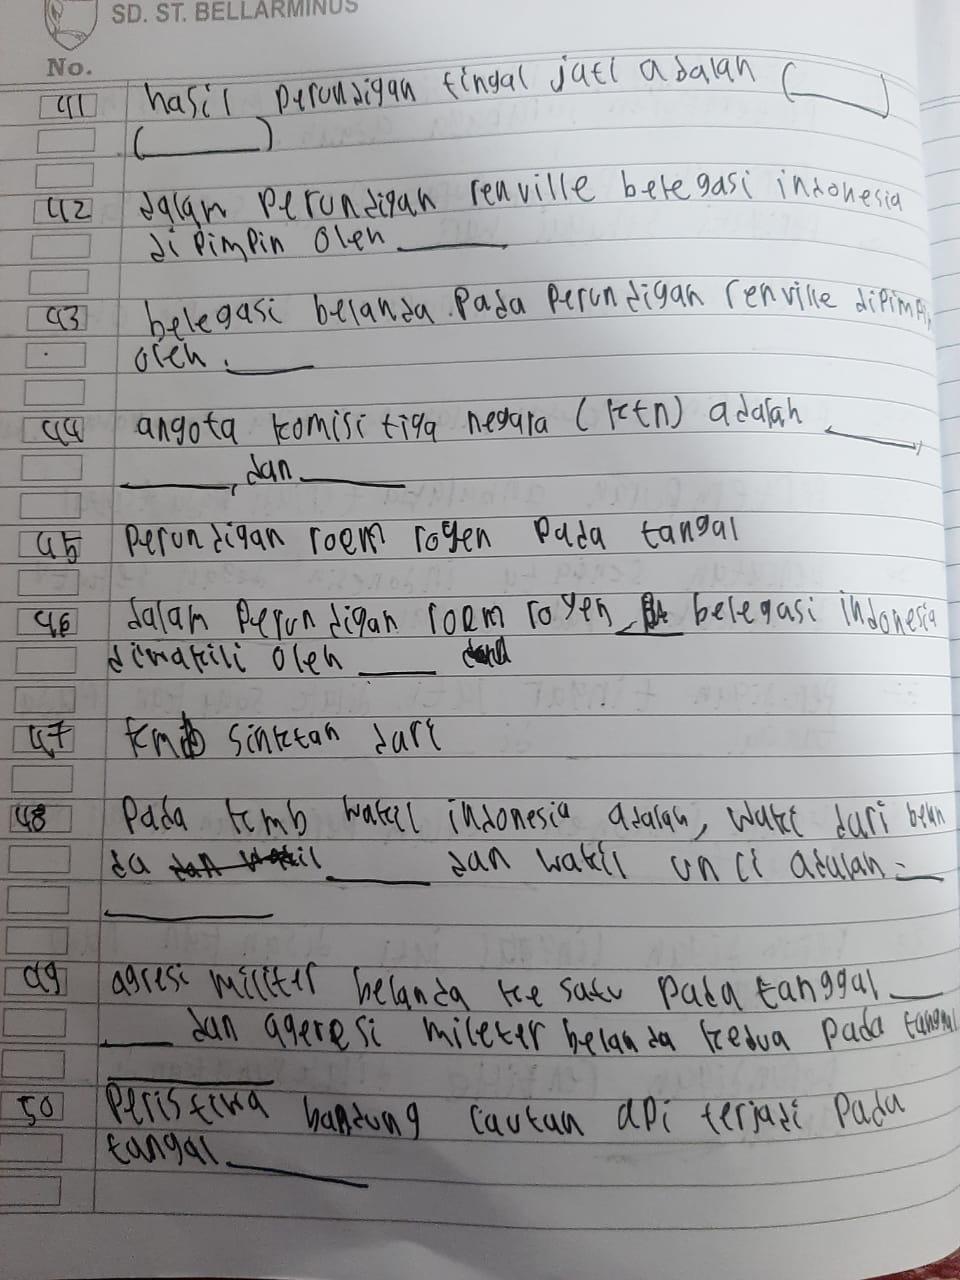 SD. ST. BELLARMINUS
No.
41 hasil perundigan tingal jati adalah (____)
(____)
42 dalam perundigan renville belegasi indonesia
di pimpin oleh ____
43 belegasi belanda pada perundigan renville dipimpin
oleh. ____
44 angota komisi tiga negara (ktn) adalah ____,
____, dan ____
45 perundigan roem royen pada tangal
46 dalam perundigan roem royen ____ belegasi indonesia
diwakili oleh ____
47 kmb sinktan dari
48 Pada kmb wakil indonesia adalah, wakil dari belan
da ____ dan wakil un ci adalah = ____
____
49 agresi militer belanda ke satu pada tanggal ____
____ dan ageresi mileter belanda kedua pada tanggal
____
50 Peristiwa bandung lautan api terjadi pada
tangal ____